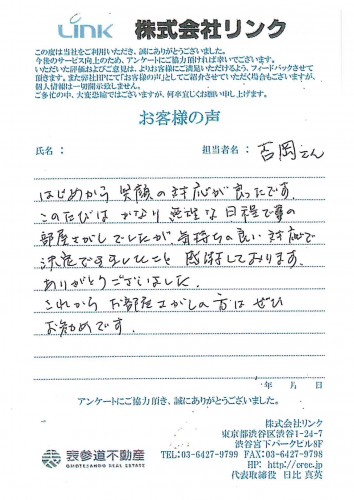 Link 株式会社リンク
この度は当社をご利用いただき、誠にありがとうございました。
今後のサービス向上のため、アンケートにご協力頂ければ幸いでございます。
いただいた評価およびご意見は、よりお客様にご満足いただけるよう、フィードバックさせて
頂きます。また弊社HPにて「お客様の声」としてご紹介させていただく場合もございますが、
個人情報は一切開示致しません。
ご多忙の中、大変恐縮ではございますが、何卒宜しくお願い申し上げます。
お客様の声
氏名: 担当者名: 吉岡さん
はじめから笑顔の対応が良ったです。
このたびはかなり無理な日程での
部屋さがしでしたが気持ちの良い対応で
決定できましたこと感謝しております。
ありがとうございました。
これからお部屋さがしの方はぜひ
お勧めです。
年 月 日
アンケートにご協力頂き、誠にありがとうございました。
株式会社リンク
東京都渋谷区渋谷1-24-7
渋谷宮下パークビル8F
TEL:03-6427-9799 FAX:03-6427-9798
HP: http://eree.jp
代表取締役 日比 真英
表参道不動産
OMOTESANDO REAL ESTATE